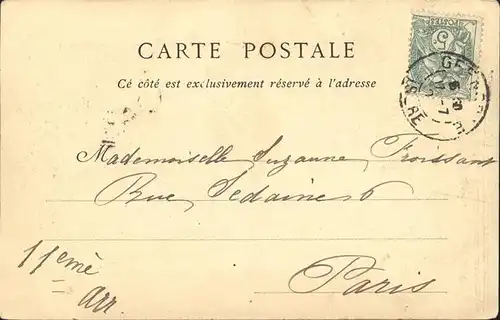 CARTE POSTALE
Ce côté est exclusivement réservé à l'adresse
POSTES
5
Mademoiselle Suzanne Froissant
Rue Sedaine 6
11eme
Arr.
Paris